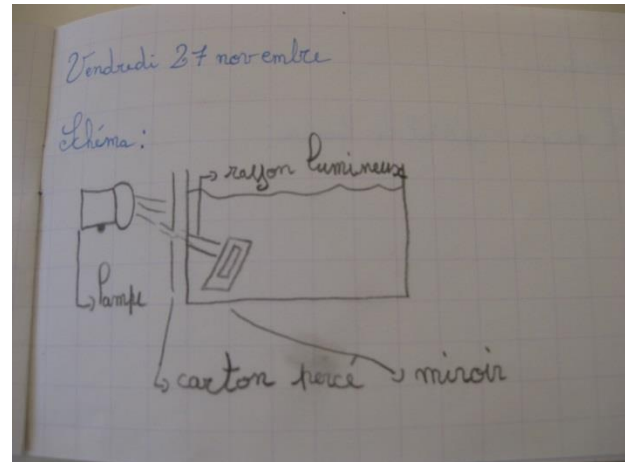 Vendredi 27 novembre
Schéma :
rayon lumineux
lampe
carton percé
miroir